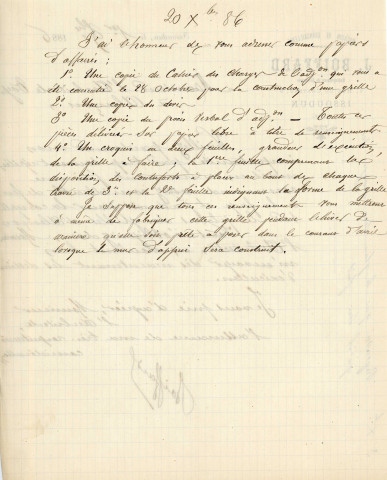 20 Xbre 86
J'ai l'honneur de vous adresser comme papiers
d'affaires :
1° Une copie du Cahier des Charges de l'adjon qui vous a
été consentie le 28 octobre pour la construction d'une grille
2° Une copie du devis
3° Une copie du procès verbal d'adjon — Toutes ces
pièces délivrées sur papier libre à titre de renseignements
4° Un croquis en deux feuilles, grandeur d'exécution,
de la grille à faire ; la 1ère feuille comprenant la
disposition des contreforts à placer au bout de chaque
travée de 3m et la 2e feuille indiquant la forme de la grille
Je suppose que tous ces renseignements vous mettront
à même de fabriquer cette grille pendant l'hiver de
manière qu'elle soit prête à poser dans le courant d'avril
lorsque le mur d'appui sera construit.